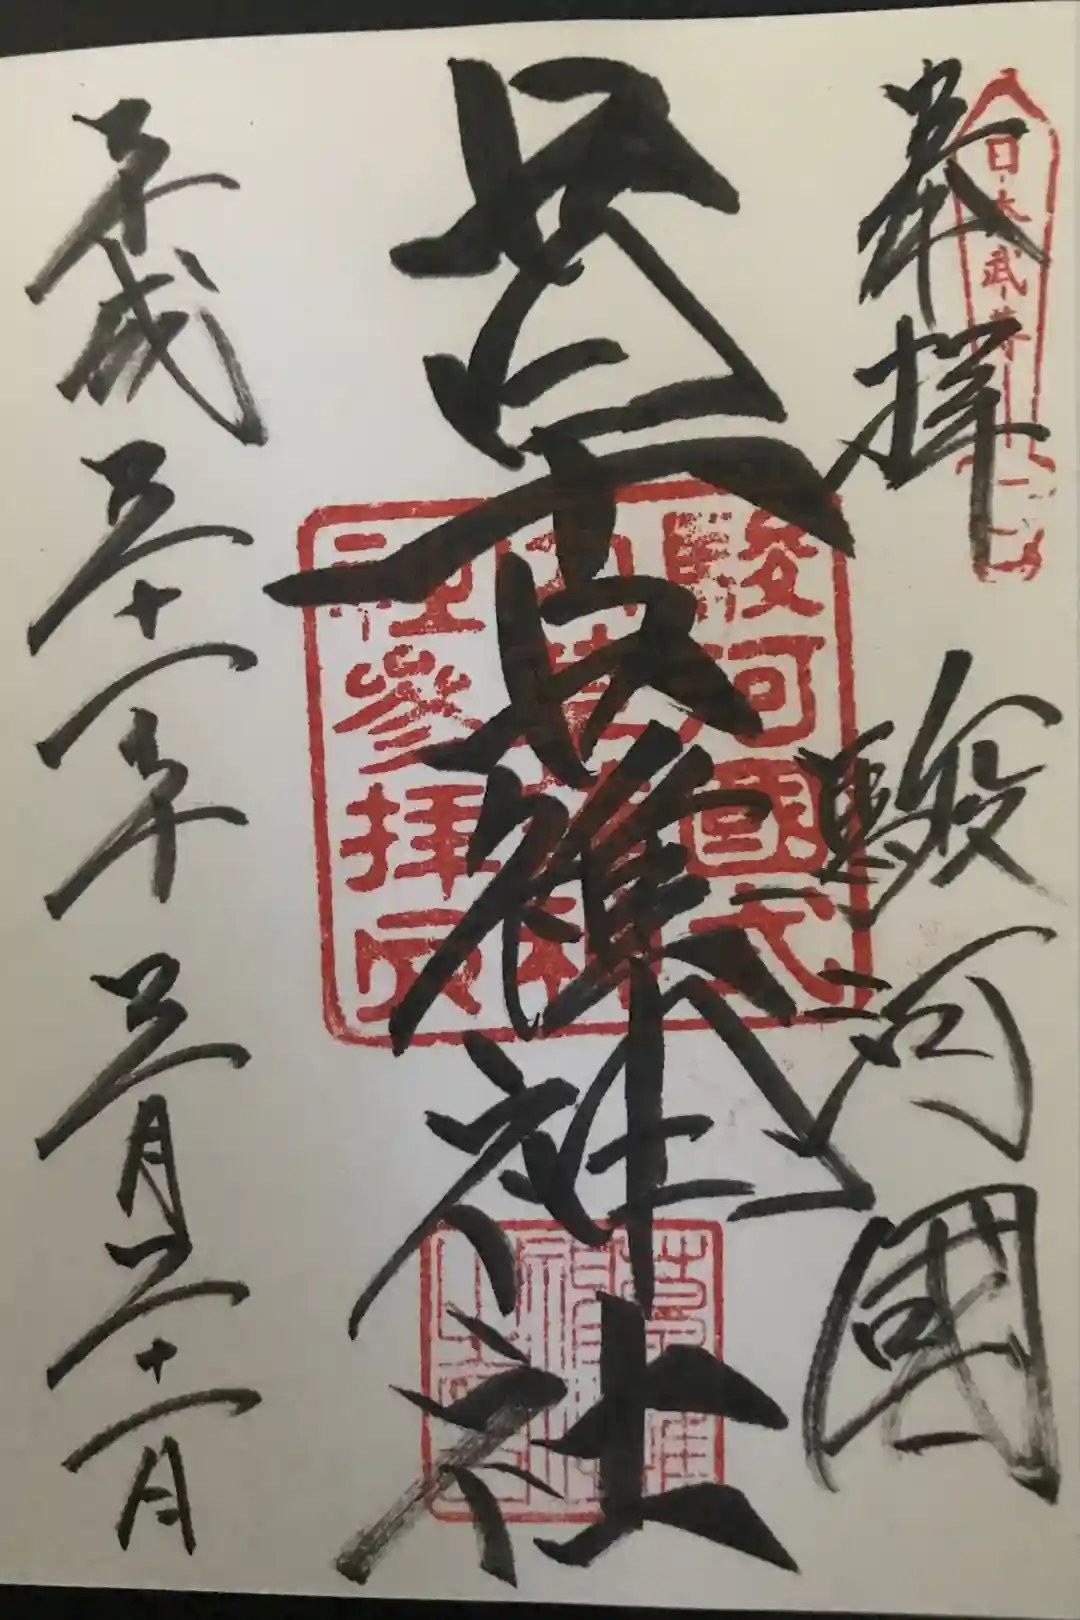 日本武尊
奉拝 駿河國
草薙神社
駿河國式
内草薙神
社參拝
平成三十一年三月三十一日